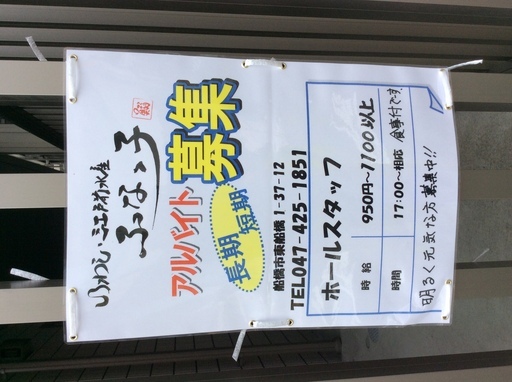 いわし・江戸前水産
ふなっ子
アルバイト
募集
長期
短期
船橋市東船橋1-37-12
TEL047-425-1851
ホールスタッフ
時給 950円〜1100以上
時間 17:00〜相応 食事付です。
明るく元気な方募集中!!